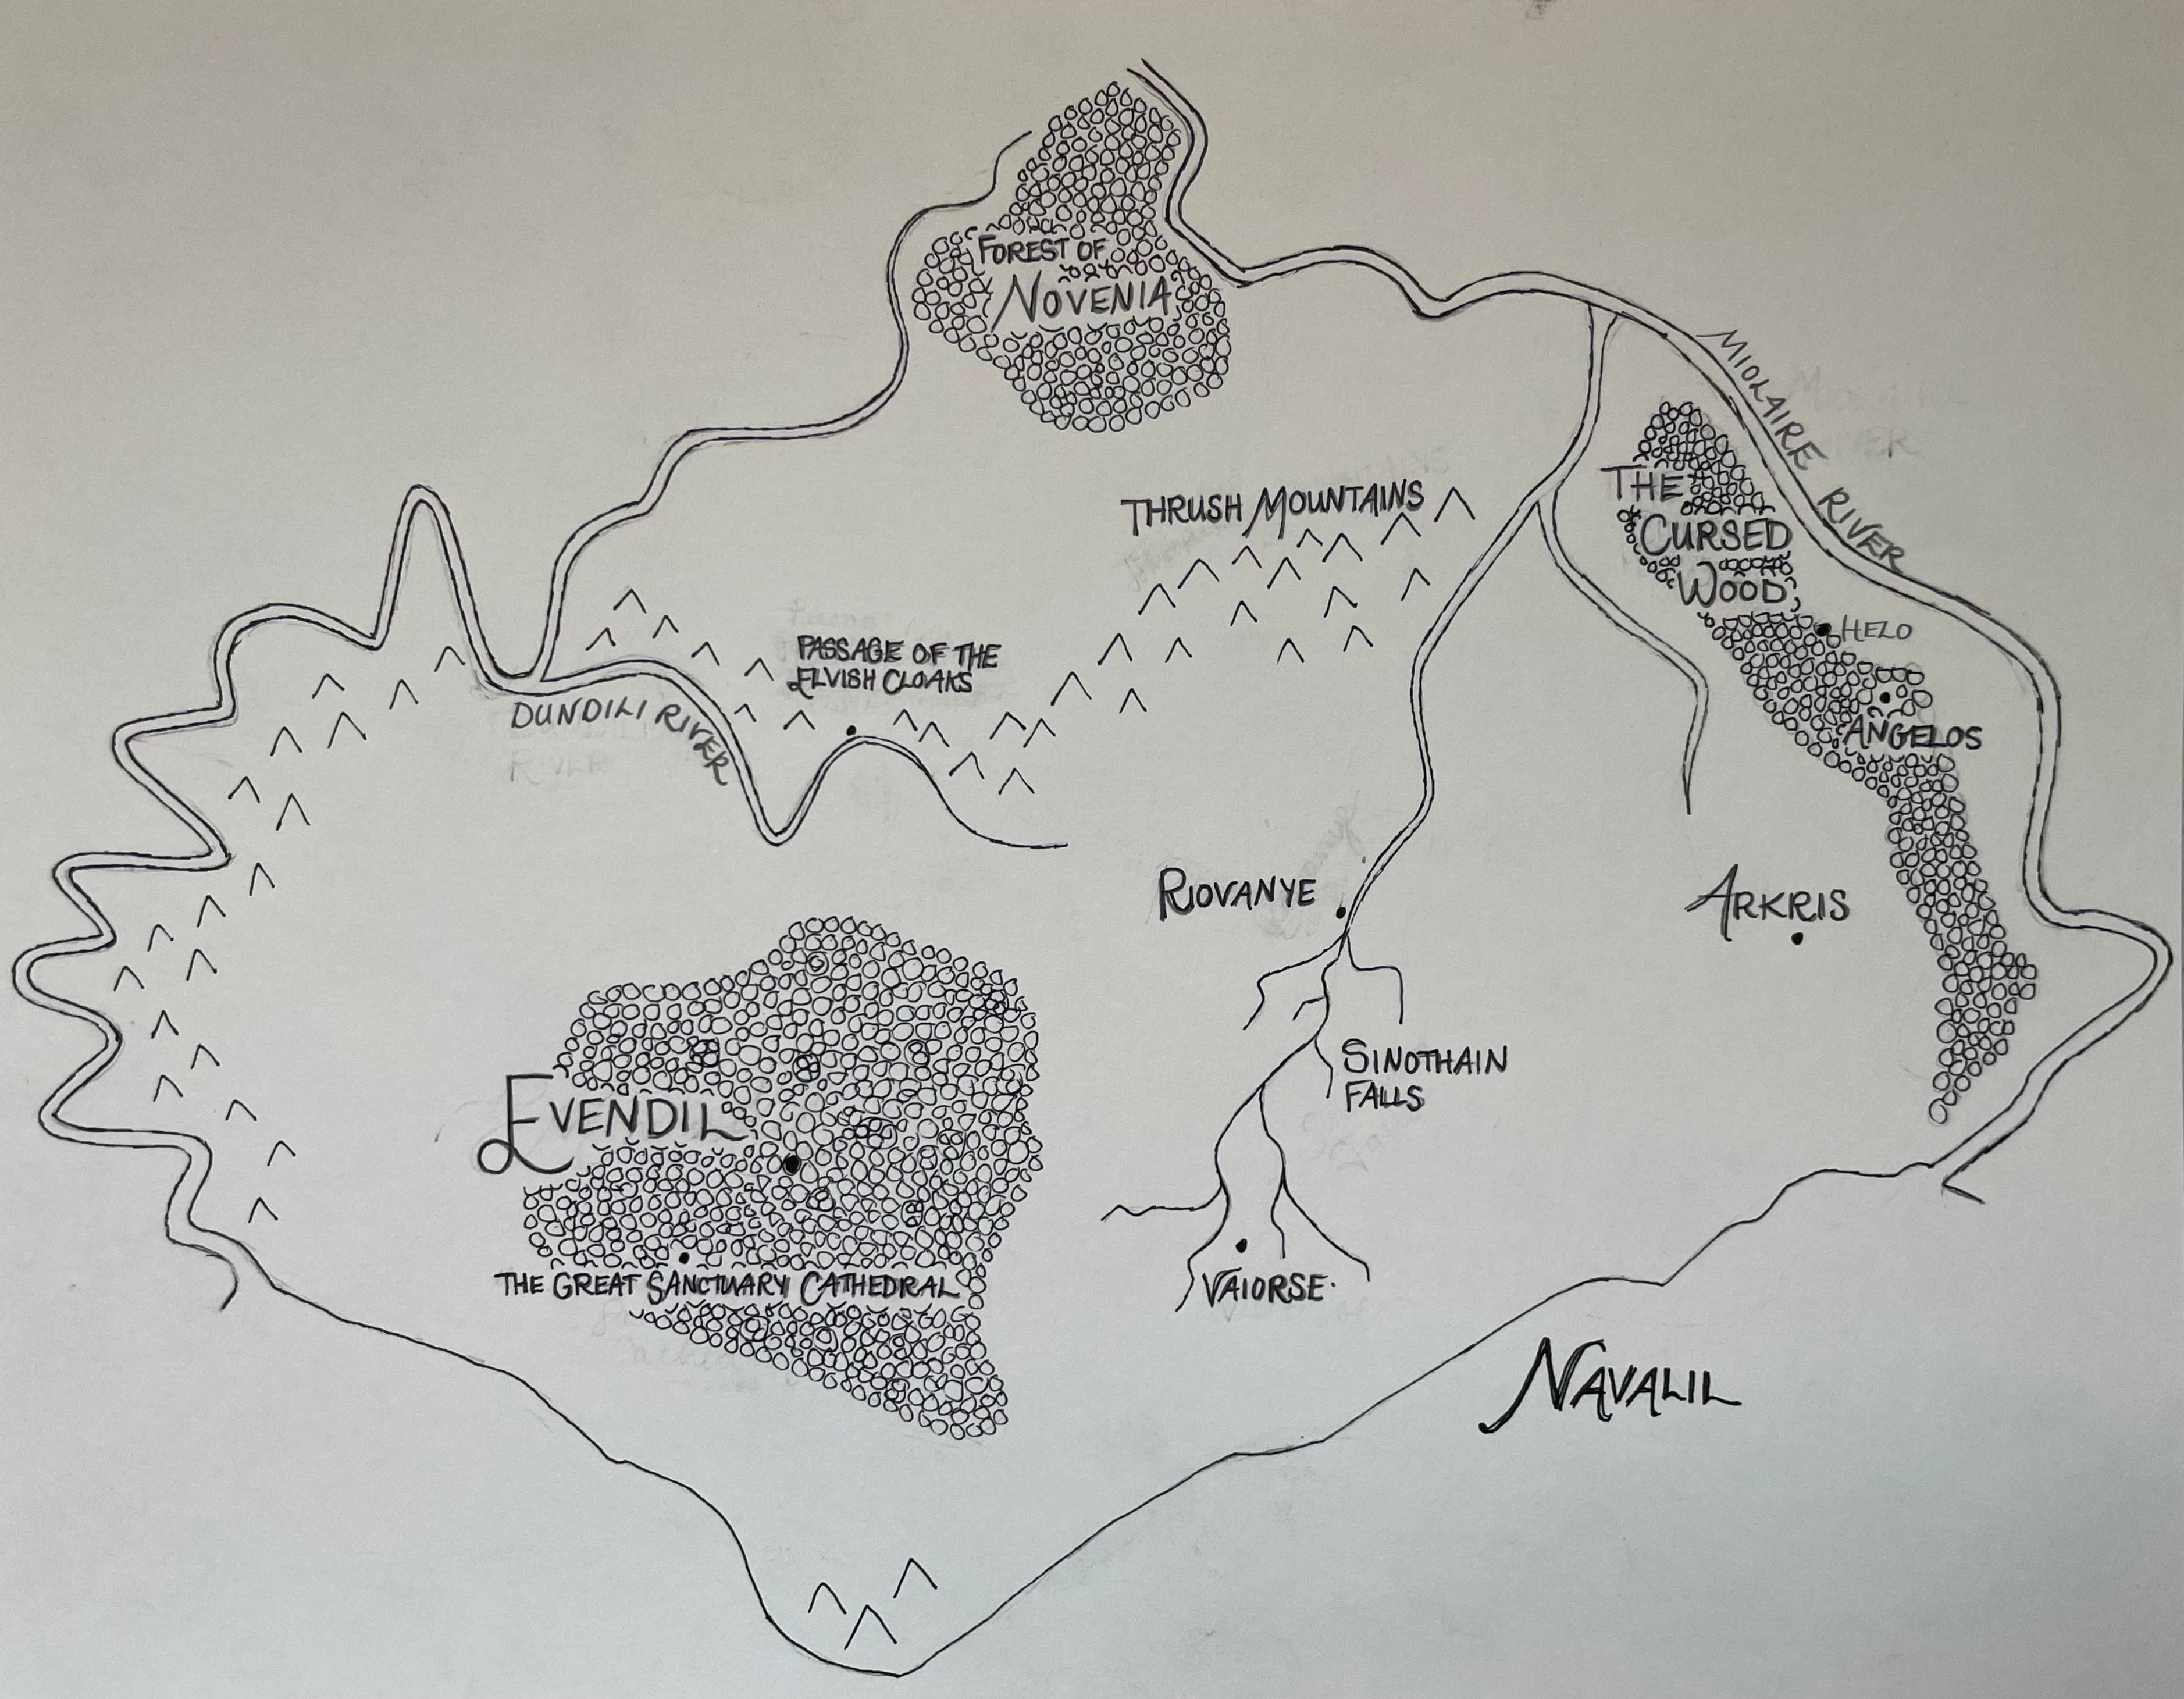 FOREST OF
NOVENIA
MIOLAIRE RIVER
THRUSH MOUNTAINS
THE
CURSED
WOOD
HELO
PASSAGE OF THE
ELVISH CLOAKS
DUNDILI RIVER
ANGELOS
RIOVANYE
ARKRIS
SINOTHAIN
FALLS
EVENDIL
THE GREAT SANCTUARY CATHEDRAL
VAIORSE
NAVALIL